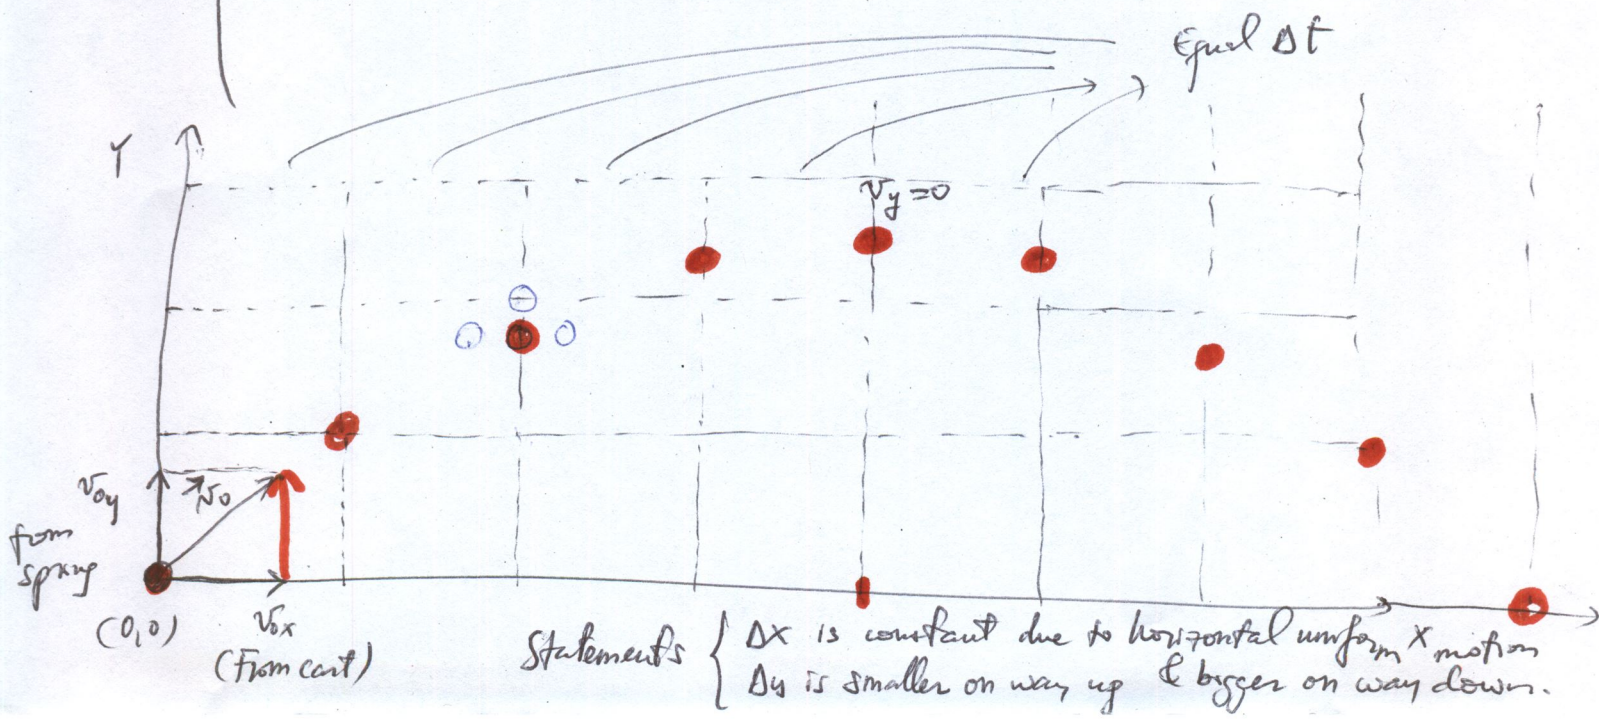 Equal Δt
Y
v_y = 0
v_0y
v_0
from
spring
(0,0)
v_0x
(From cart)
X
Statements { Δx is constant due to horizontal uniform motion
Δy is smaller on way up & bigger on way down.